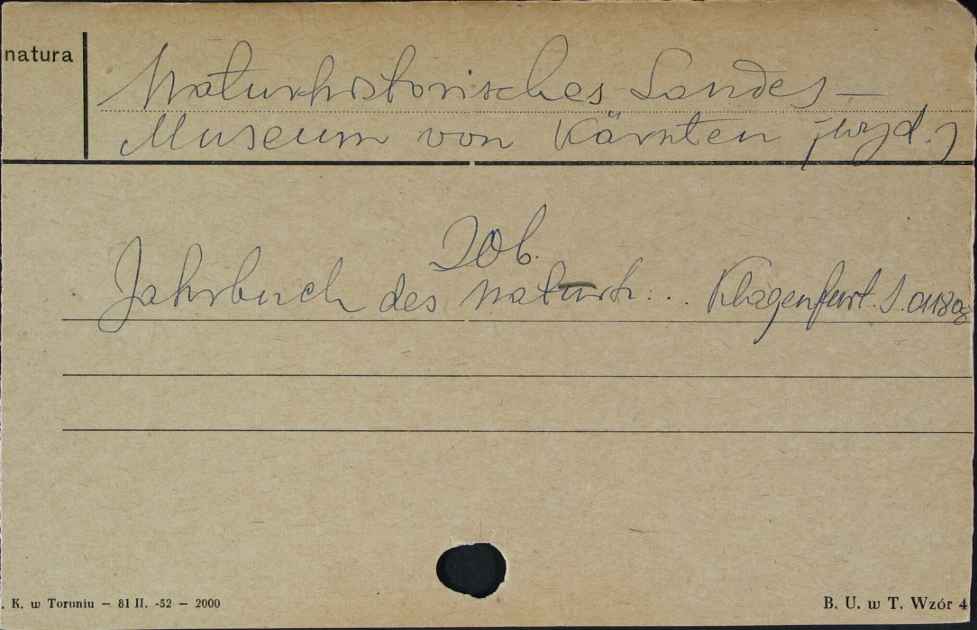 natura
Naturhistorisches Landes-
Museum von Kärnten (wyd.)
Zob.
Jahrbuch des naturh... Klagenfurt. S.
. K. w Toruniu — 81 II. -52 — 2000
B. U. w T. Wzór 4